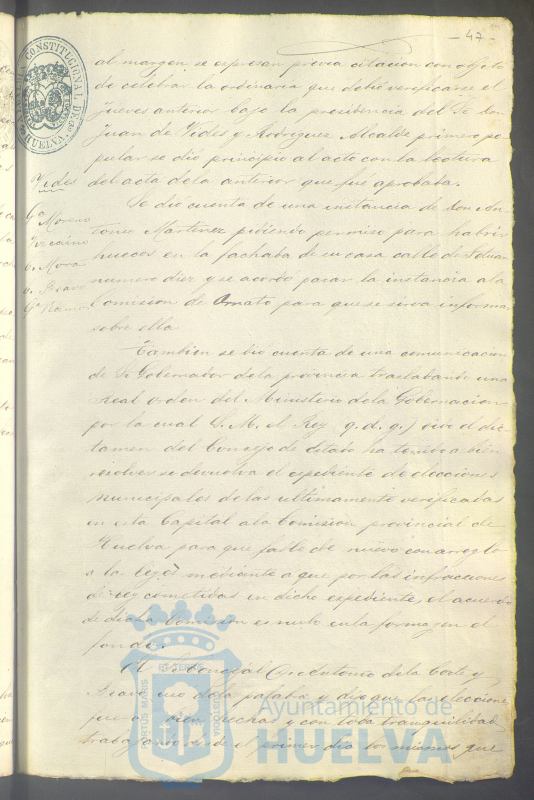 - 47 -
al margen se espresan prévia citacion con objeto
de celebrar la ordinaria que debió verificarse el
jueves anterior bajo la presidencia del Sr Don
Juan de Vides y Rodriguez Alcalde primero po
pular se dio principio al acto con la lectura
del acta de la anterior que fué aprobaba.
Se dio cuenta de una instancia de Don An
tonio Martinez pidiendo permiso para habrir
huecos en la fachaba de su casa calle de
numero diez y se acordó pasar la instancia a la
Comision de Ornato para que se sirva informar
sobre ella
Tambien se dió cuenta de una comunicacion
de Sr Gobernador de la provincia traslabando una
Real orden del Ministerio de la Gobernacion
por la cual S. M. el Rey q. d. g.) oido el dic
tamen del Consejo de Estado ha tenido a bien
resolver se devuelva el espediente de elecciones
municipales de las ultimamente verificadas
en esta Capital a la Comision provincial de
Huelva para que falle de nuevo con arreglo
a la ley mediante a que por las infracciones
de ley cometidas en dicho expediente, el acuerdo
de dicha Comision es nulo en la forma y en el
fondo.
El Concejal D. Antonio de la Corte y
Bravo usó de la palabra y dijo que las elecciones
fueron bien hechas y con toda tranquilidad
trabajando desde el primer dia los mismos que
Vides
Ga Moreno
Vizcaino
Mora
Bravo
Ga Ramos
CONSTITUCIONAL DE
HUELVA
PORTUS MARIS
ET TERRE
CUSTODIA
Ayuntamiento de
HUELVA